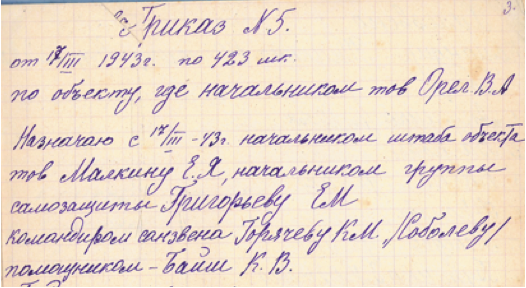 3.
Приказ N 5.
от 17/III 1943г. по 423 шк.
по объекту, где начальником тов Орел В.А
Назначаю с 17/III-43г. начальником штаба объекта
тов Малкину Е.Я, начальником группы
самозащиты Григорьеву ЕМ
командиром санзвена Горячеву К.М. /Соболеву/
помощником - Байш К. В.